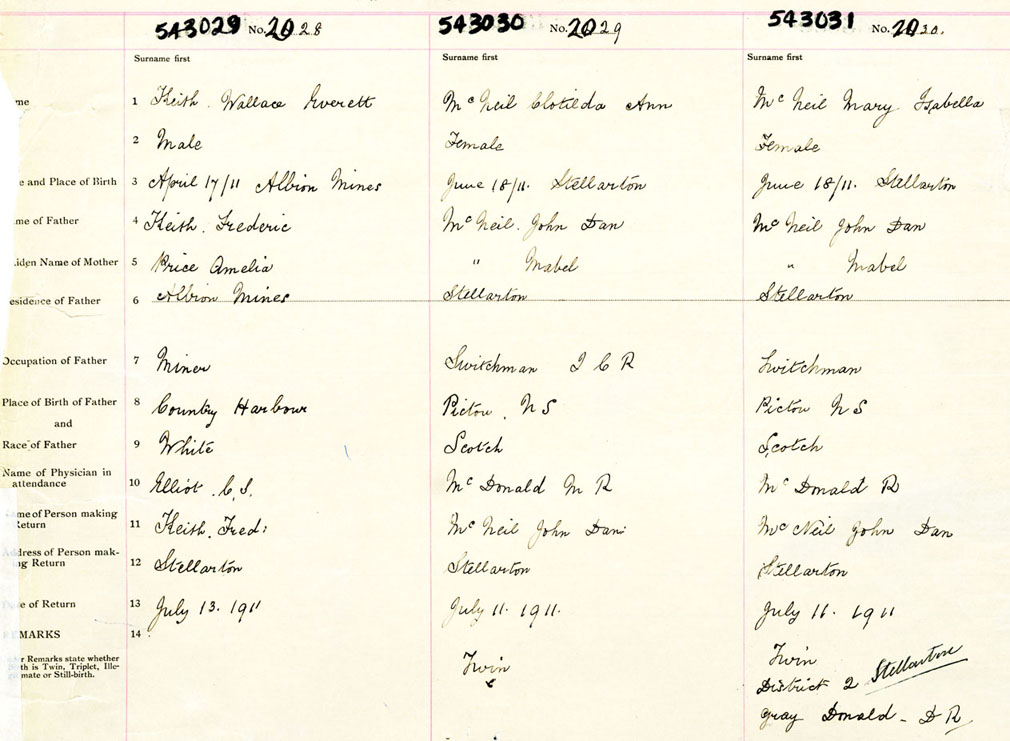 543029 No. 2028 543030 No. 2029 543031 No. 2030.
Surname first Surname first Surname first
me 1 Keith. Wallace Everett Mc Neil Clotilda Ann Mc Neil Mary Isabella
2 Male Female Female
e and Place of Birth 3 April 17/11 Albion Mines June 18/11. Stellarton June 18/11. Stellarton
me of Father 4 Keith. Frederic Mc Neil. John Dan Mc Neil John Dan
iden Name of Mother 5 Price Amelia " Mabel " Mabel
esidence of Father 6 Albion Mines Stellarton Stellarton
Occupation of Father 7 Miner Switchman I C R Switchman
Place of Birth of Father 8 Country Harbour Pictou. N S Pictou N S
and
Race of Father 9 White Scotch Scotch
Name of Physician in
attendance 10 Elliot. C. S. Mc Donald M R Mc Donald R
ame of Person making
Return 11 Keith. Fred: Mc Neil John Dan: Mc Neil John Dan
Address of Person mak-
ng Return 12 Stellarton Stellarton Stellarton
te of Return 13 July 13. 1911 July 11. 1911. July 11. 1911
EMARKS 14
r Remarks state whether
th is Twin, Triplet, Ille-
mate or Still-birth.
Twin Twin
District 2 Stellarton
Gray Donald - D R